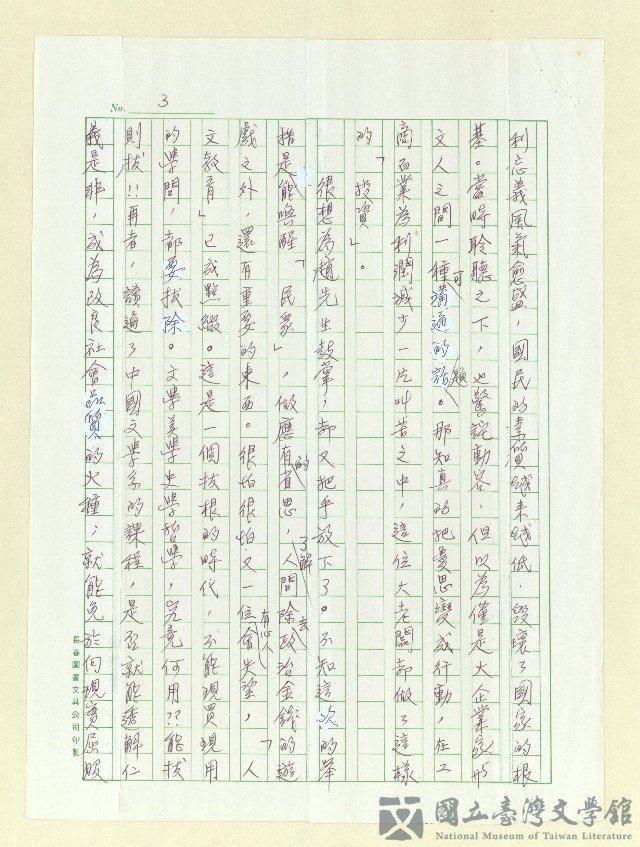 No. 3
利忘義風氣愈盛，國民的素質越來越低，毀壞了國家的根
基。當時聆聽之下，也驚詫動容，但以為僅是大企業家與
文人之間一種可溝通的話題。那知真的把憂思變成行動，在工
商百業為利潤減少一片叫苦之中，這位大老闆卻做了這樣
的「投資」。
很想為趙先生鼓掌，卻又把手放下了。不知這次的舉
措是能喚醒「民眾」，做應有的省思，了解人間除去政治金錢的遊
戲之外，還有重要的東西。很怕很怕又一位有心人會失望，「人
文教育」已成點綴。這是一個拔根的時代，不能現買現用
的學問，都要拔除。文學美學史學哲學，究竟何用??能拔
則拔!!再者，讀遍了中國文學系的課程，是否就能透解仁
義是非，成為改良社會品質的火種；就能免於向現實屈服
長春圖書文具公司印製
國立臺灣文學館
National Museum of Taiwan Literature